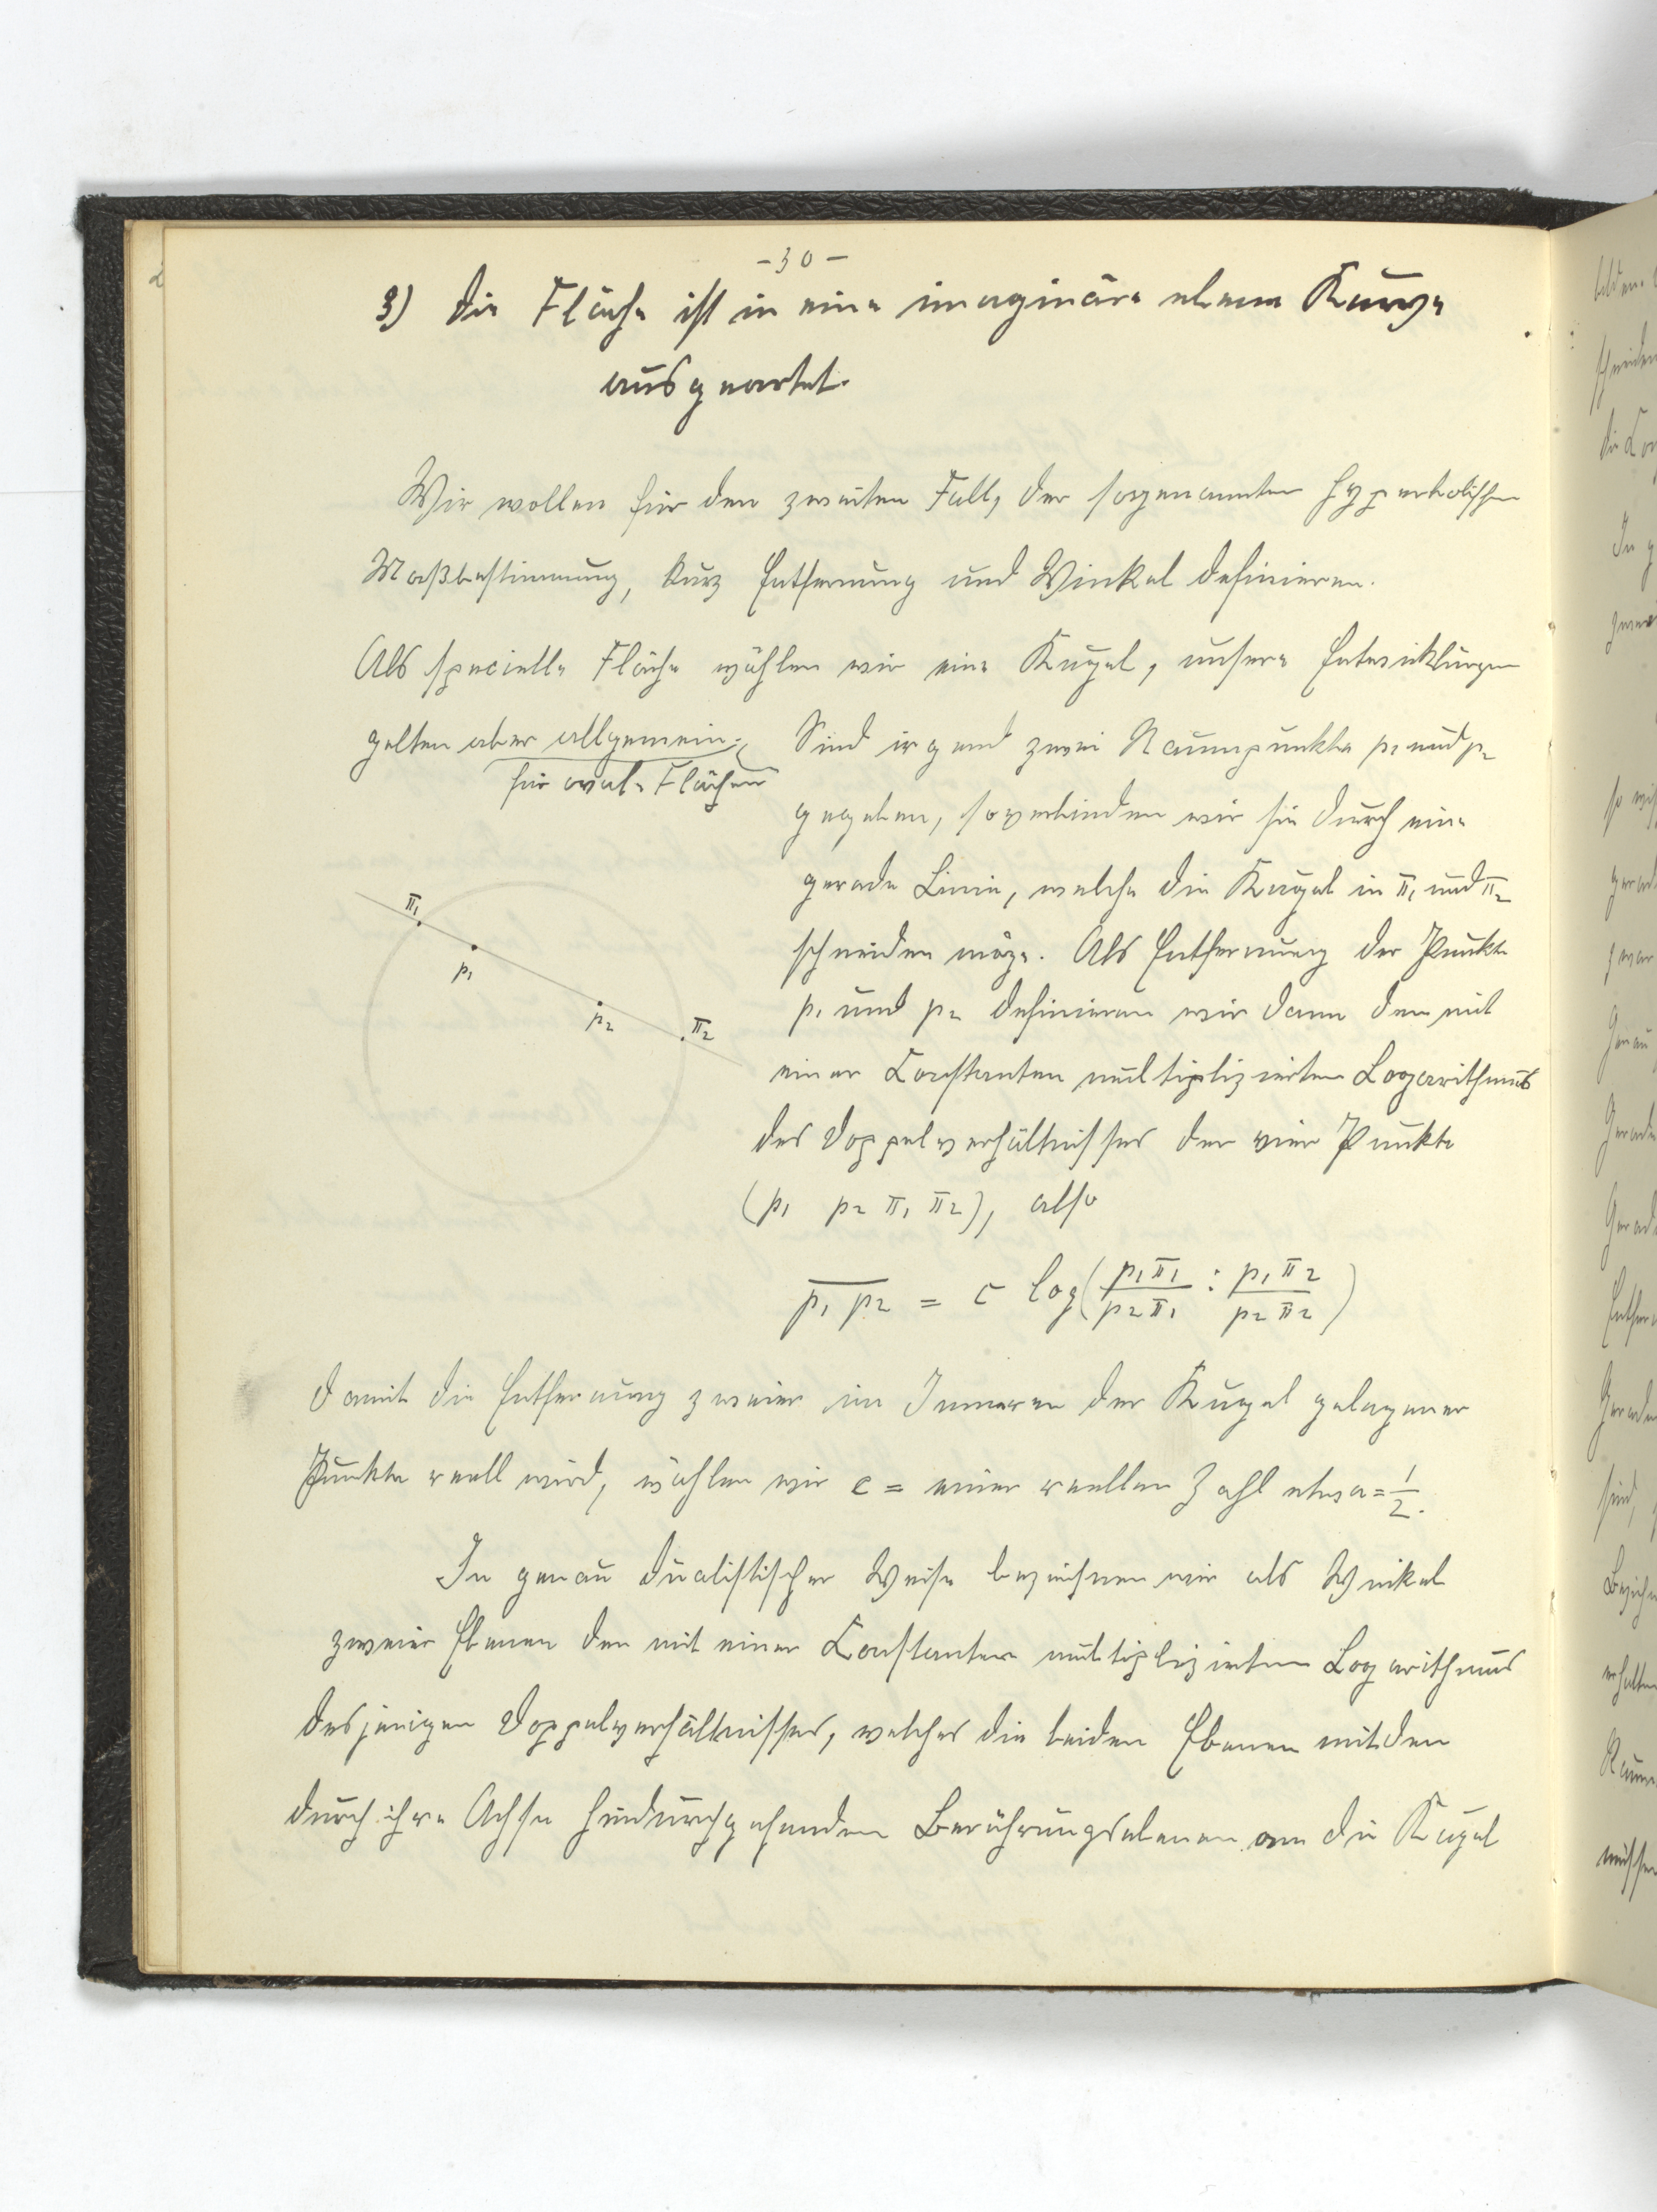 - 30 -
3) Die Fläche ist in eine imaginäre ebene Kurve
ausgeartet.
Wir wollen für den zweiten Fall, der sogenannten hyperbolischen
Maßbestimmung, kurz Entfernung und Winkel definieren.
Als specielle Fläche wählen wir eine Kugel, unsere Entwicklungen
gelten aber allgemein
für ovale Flächen
Sind irgend zwei Raumpunkte p1 und p2
gegeben, so verbinden wir sie durch eine
gerade Linie, welche die Kugel in π1 und π2
schneiden möge. Als Entfernung der Punkte
p1 und p2 definieren wir dann den mit
einer Constanten multiplizierten Logarithmus
des Doppelverhältnisses der vier Punkte
(p1 p2 π1 π2), also
π1
p1
p2
π2
p1 p2 = c log(p1π1/p2π1 : p1π2/p2π2)
damit die Entfernung zweier im Inneren der Kugel gelegener
Punkte reell wird, wählen wir c = einer reellen Zahl etwa = 1/2.
In genau dualistischer Weise bezeichnen wir als Winkel
zweier Ebenen den mit einer Constanten multiplizierten Logarithmus
desjenigen Doppelverhältnisses, welches die beiden Ebenen mit den
durch ihre Achse hindurchgehenden Berührungsebenen an die Kugel